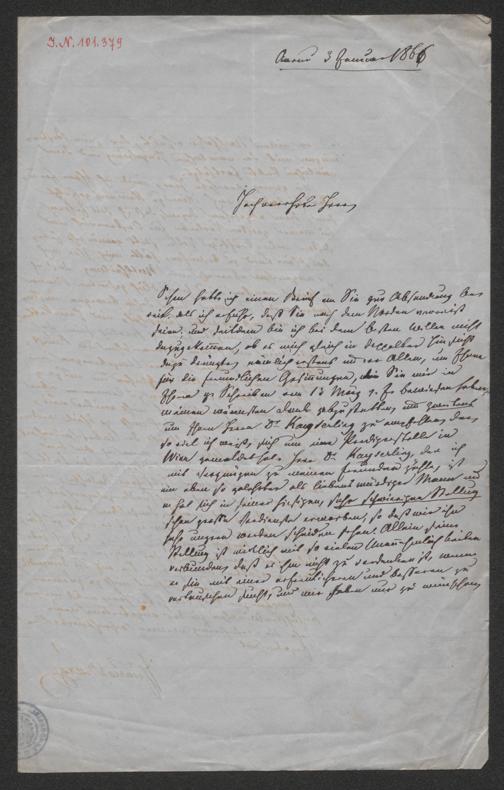 I.N. 101.379
Aarau 3 Januar 1866
Hochverehrter Herr,
Schon hatte ich einen Brief an Sie zur Absendung be
reit, als ich erfuhr, daß Sie nach dem Norden verreist
seien, und seitdem bin ich bei dem besten Willen nicht
dazugekommen, ob es mich gleich in doppelter Hinsicht
dazu drängte, nämlich erstens und vor Allem, um Ihnen
für die freundlichen Gesinnungen, die Sie mir in
Ihrem Schreiben vom 13 März v. J. bewiesen haben,
meinen wärmsten Dank abzustatten, und zweitens
um Ihnen Herrn Dr. Kayserling zu empfehlen, der,
so viel ich weiß, sich um eine Predigerstelle in
Wien gemeldet hat. Herr Dr. Kayserling, den ich
mit Vergnügen zu meinen Freunden zähle, ist
ein eben so gelehrter als liebenswürdiger Mann und
er hat sich in seiner hiesigen, sehr schwierigen Stellung
schon große Verdienste erworben, so daß wir ihn
sehr ungern werden scheiden sehen. Allein seine
Stellung ist wirklich mit so vielen Unannehmlichkeiten
verbunden, daß es ihm nicht zu verdenken ist, wenn
er sie mit einer erfreulicheren und besseren zu
vertauschen sucht, und wir haben nur zu wünschen,